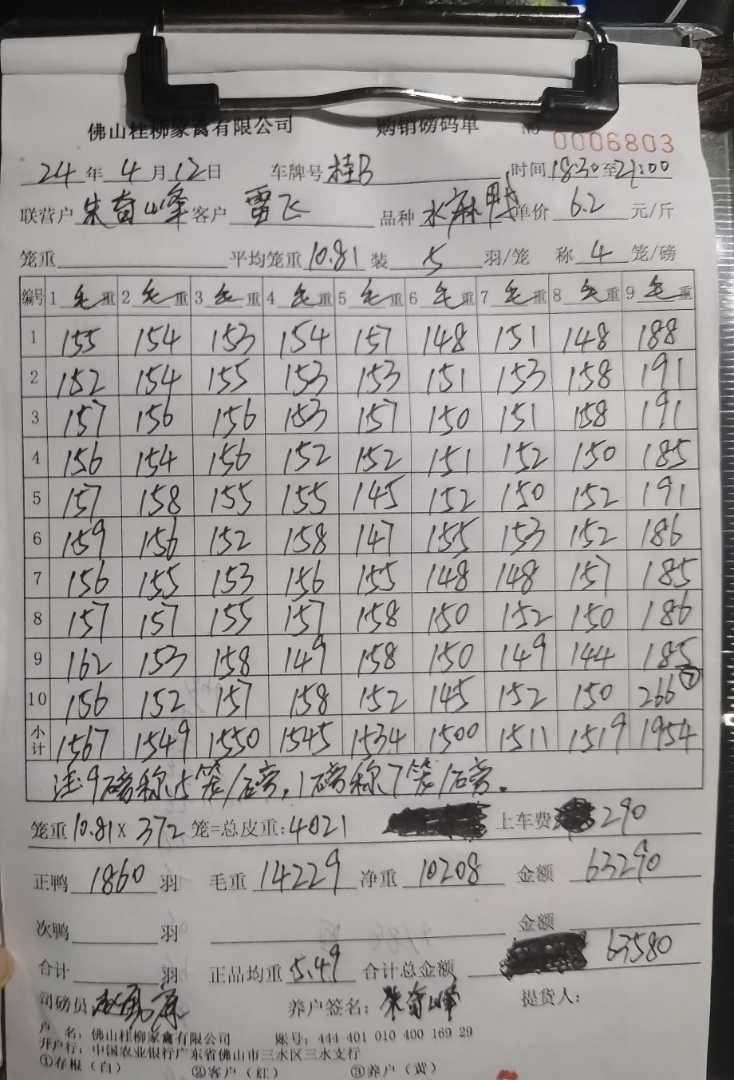 佛山桂柳家禽有限公司 购销磅码单 № 0006803
24年4月12日 车牌号桂B 时间18:30至21:00
联营户 朱奋峰 客户 雷飞 品种 水麻鸭 单价 6.2 元/斤
笼重 平均笼重10.81 装 5 羽/笼 称 4 笼/磅
编号 1毛重 2毛重 3毛重 4毛重 5毛重 6毛重 7毛重 8毛重 9毛重
1 155 154 153 154 157 148 151 148 188
2 152 154 155 153 153 151 153 158 191
3 157 156 156 153 157 150 151 158 191
4 156 154 156 152 152 151 152 150 185
5 157 158 155 155 145 152 150 152 191
6 159 156 152 158 147 155 153 152 186
7 156 155 153 156 155 148 148 157 185
8 157 157 155 157 158 150 152 150 186
9 162 153 158 149 158 150 149 144 185
10 156 152 157 158 152 145 152 150 266⑦
小计 1567 1549 1550 1545 1534 1500 1511 1519 1954
注:9磅称5笼/磅,1磅称7笼/磅。
笼重10.81×372笼=总皮重:4021 上车费 290
正鸭 1860 羽 毛重 14229 净重 10208 金额 63290
次鸭 羽 金额
合计 羽 正品均重5.49 合计总金额 63580
司磅员 养户签名:朱奋峰 提货人:
户 名:佛山桂柳家禽有限公司 账号:444 401 010 400 169 29
开户行:中国农业银行广东省佛山市三水区三水支行
①存根(白) ②客户(红) ③养户(黄)